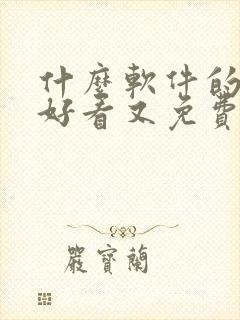 什麼軟件的
好看又免費
嚴寶蘭